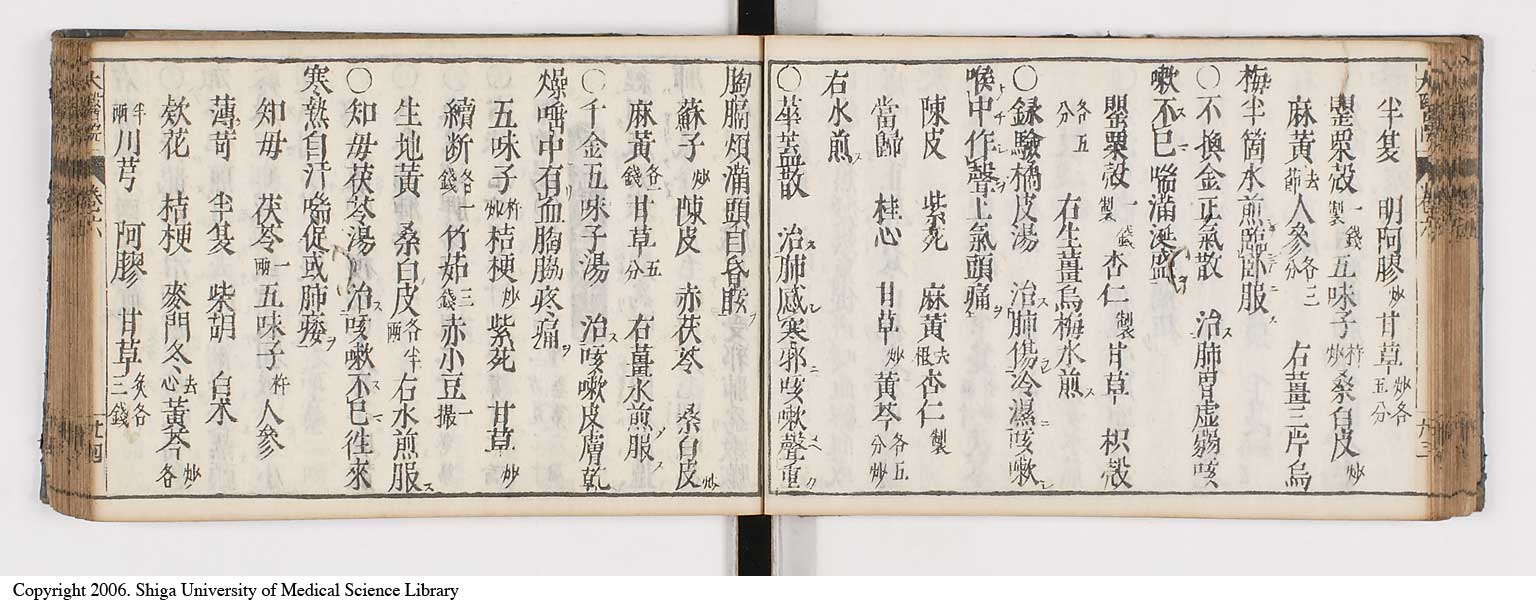 半夏 明阿膠炒 甘草炒各五分
罌栗殻製一錢 五味子杵炒 桑白皮炒
麻黄去節 人參各三分 右薑三片烏
梅半箇水煎臨臥服ス
〇不換金正氣散 治ス肺胃虚弱咳
嗽不巳喘滿涎盛ヲ
罌栗殻製一錢 杏仁製 甘草 枳殻
各五分 右生薑烏梅水煎ス
〇録驗橘皮湯 治ス肺傷冷濕咳嗽シ
喉中作聲上氣頭痛ヲ
陳皮 紫菀 麻黄去根 杏仁製
當歸 桂心 甘草炒 黄芩各五分炒
右水煎ス
〇華蓋散 治ス肺感寒邪咳嗽聲重ク
胸膈煩滿頭目昏眩ヲ
蘇子炒 陳皮 赤茯苓 桑白皮炒
麻黄各一錢 甘草五分 右薑水煎服ス
〇千金五味子湯 治ス咳嗽皮膚乾
燥唾中有血胸脇疼痛ヲ
五味子杵炒 桔梗炒 紫菀 甘草炒
續断各一錢 竹茹三錢 赤小豆一撮
生地黄 桑白皮各半兩 右水煎服ス
〇知毋茯苓湯 治ス咳嗽不巳徃來
寒熱自汗喘促或肺痿ヲ
知毋 茯苓一兩 五味子杵 人參
薄苛 半夏 柴胡 白朮
欵花 桔梗 麥門冬去心 黄芩炒各
半兩 川芎 阿膠 甘草炙各三錢
Copyright 2006. Shiga University of Medical Science Library